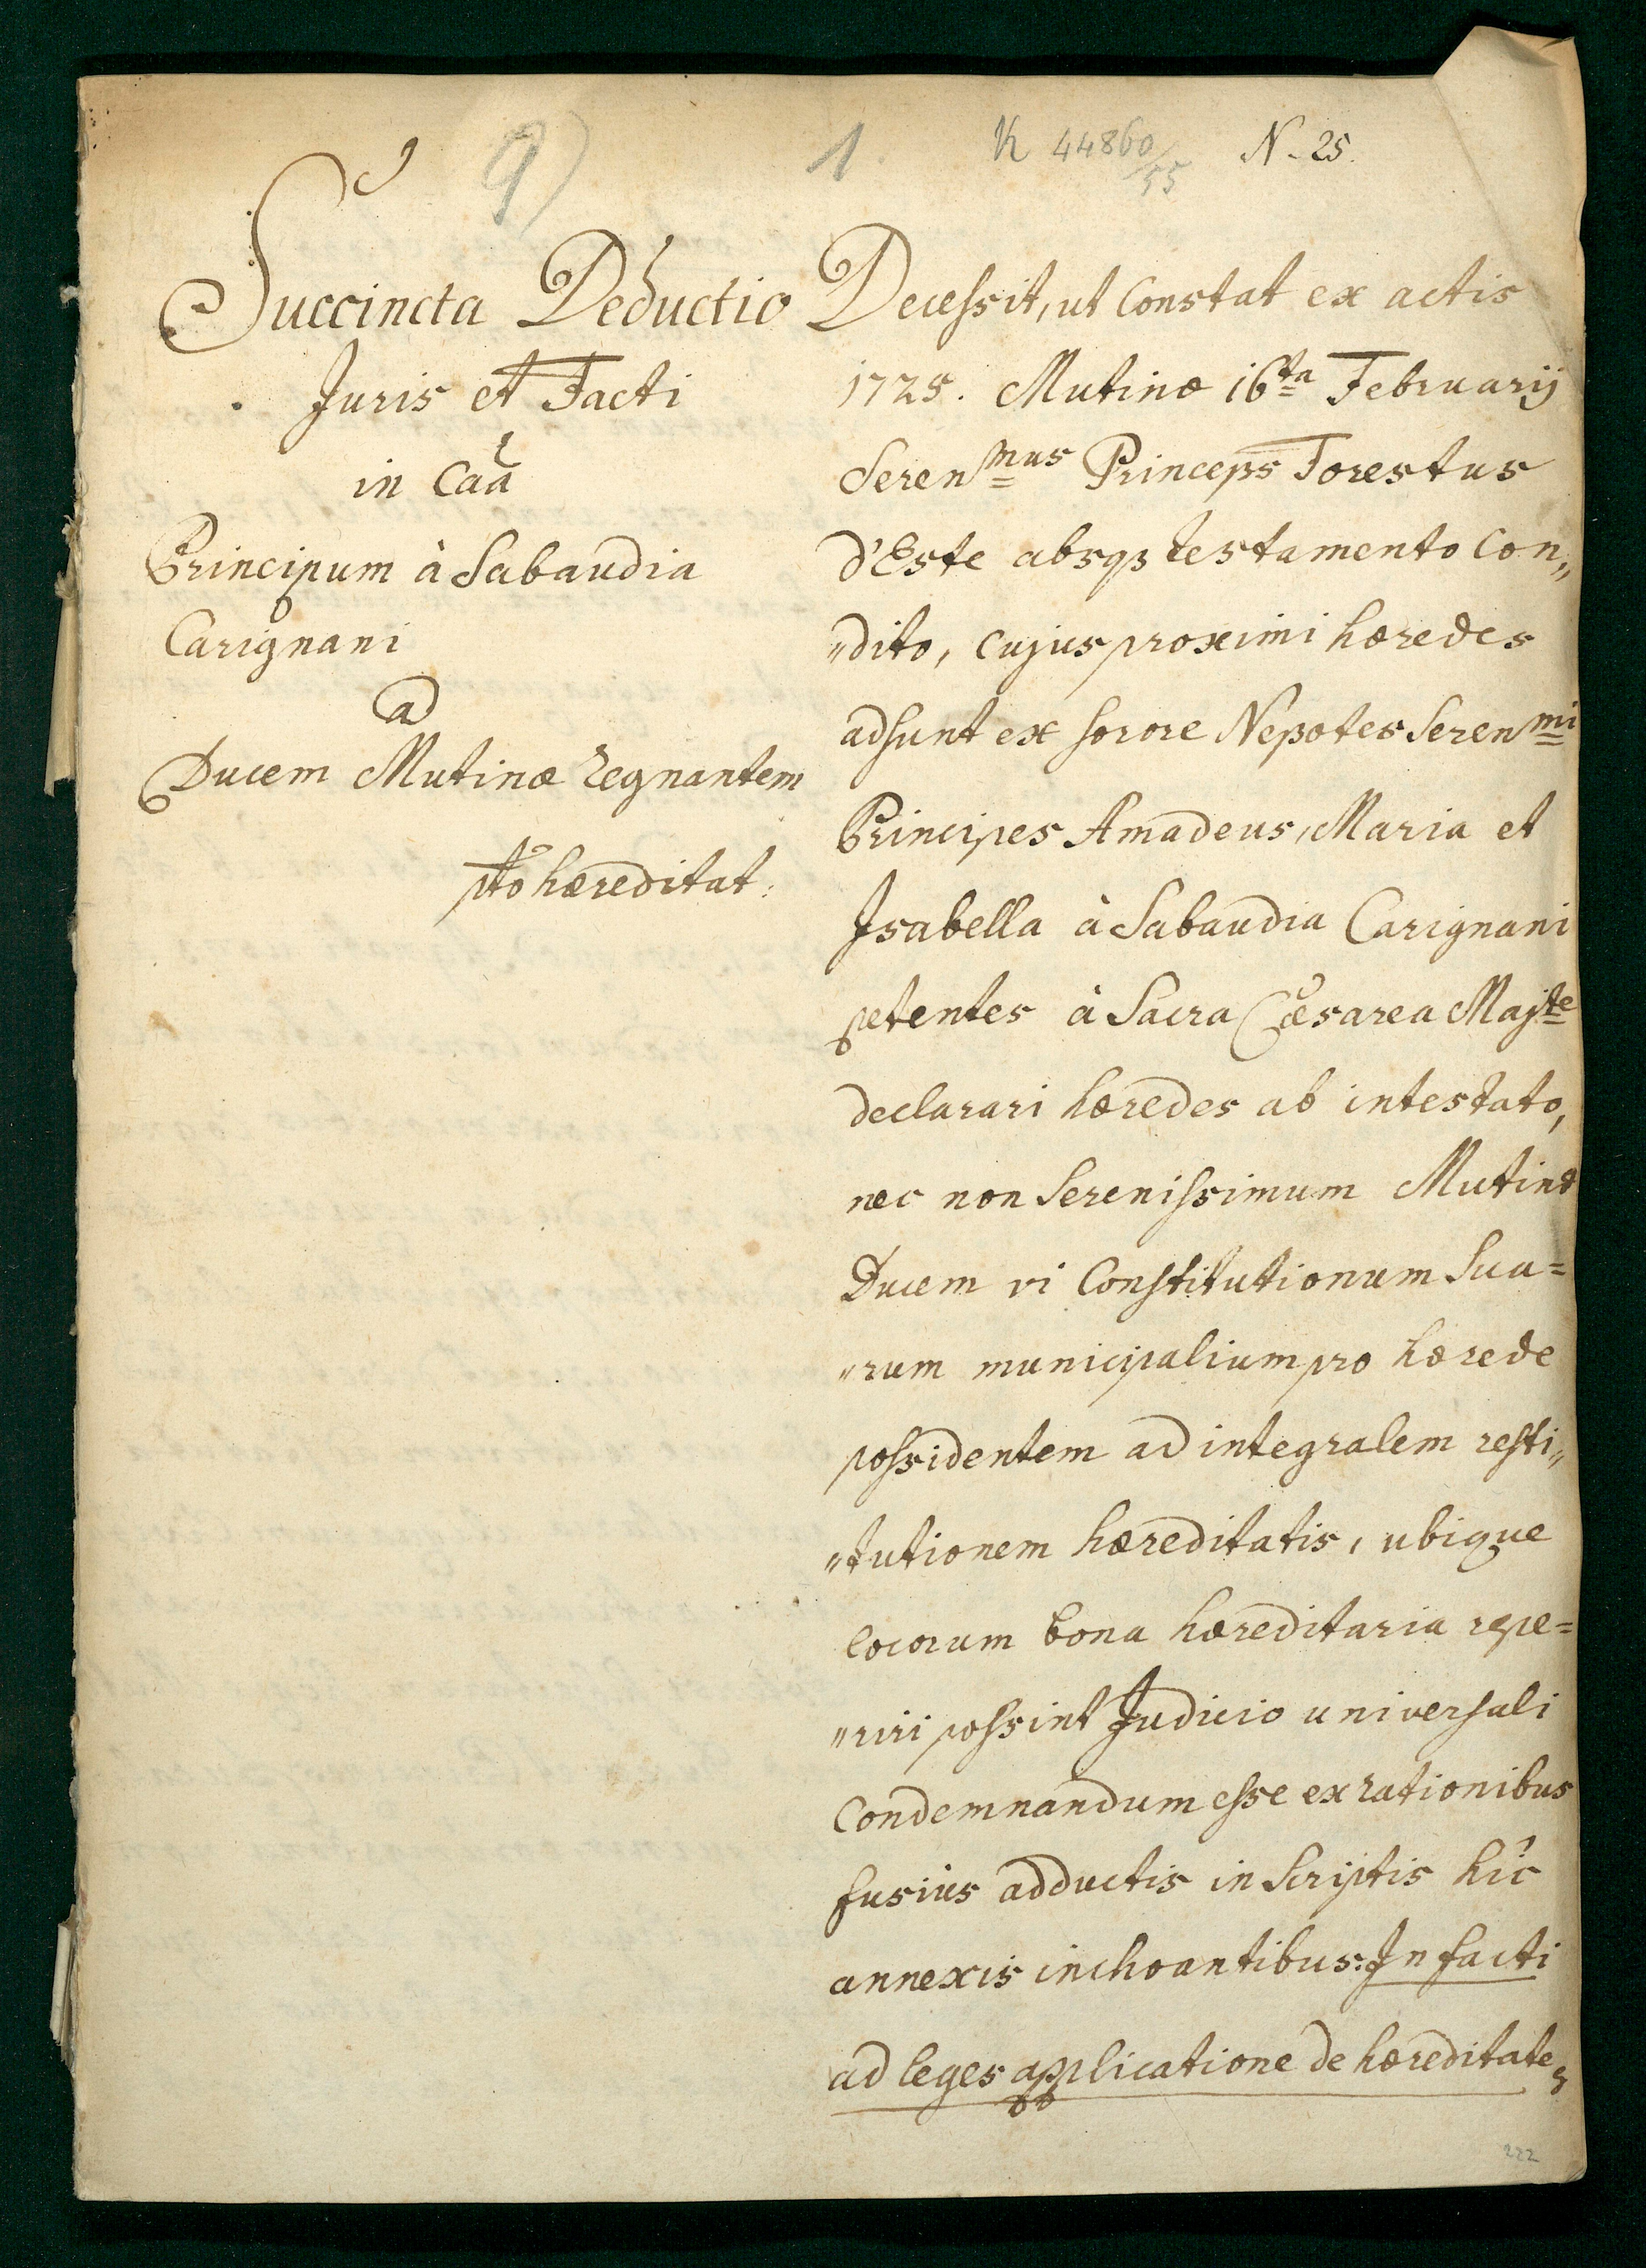 9)
1
K 44860/55
N. 25.
Succincta Deductio
Juris et Facti
in Caã
Principum à Sabaudia
Carignani
ad
Ducem Mutinæ regnantem
pto hæreditat:
Decessit, ut Constat ex actis
1725. Mutinæ 16ta Februarij
Serenmus Princeps Forestus
d'Este absqs testamento Con„
„dito, cujus proximi hæredes
adsunt ex sorore Nepotes Serenmi
Principes Amadeus, Maria et
Isabella à Sabaudia Carignani
petentes à Sacra Cæsarea Majte
declarari hæredes ab intestato,
nec non Serenissimum Mutinæ
Ducem vi Constitutionum Sua=
„rum municipalium pro hærede
possidentem ad integralem resti„
„tutionem hæreditatis, ubique
locorum bona hæreditaria repe=
„riri possint Judicio universali
Condemnandum esse ex rationibus
fusiùs adductis in Scriptis hîc
annexis inchoantibus: In facti
ad leges applicatione de hæreditate,
222